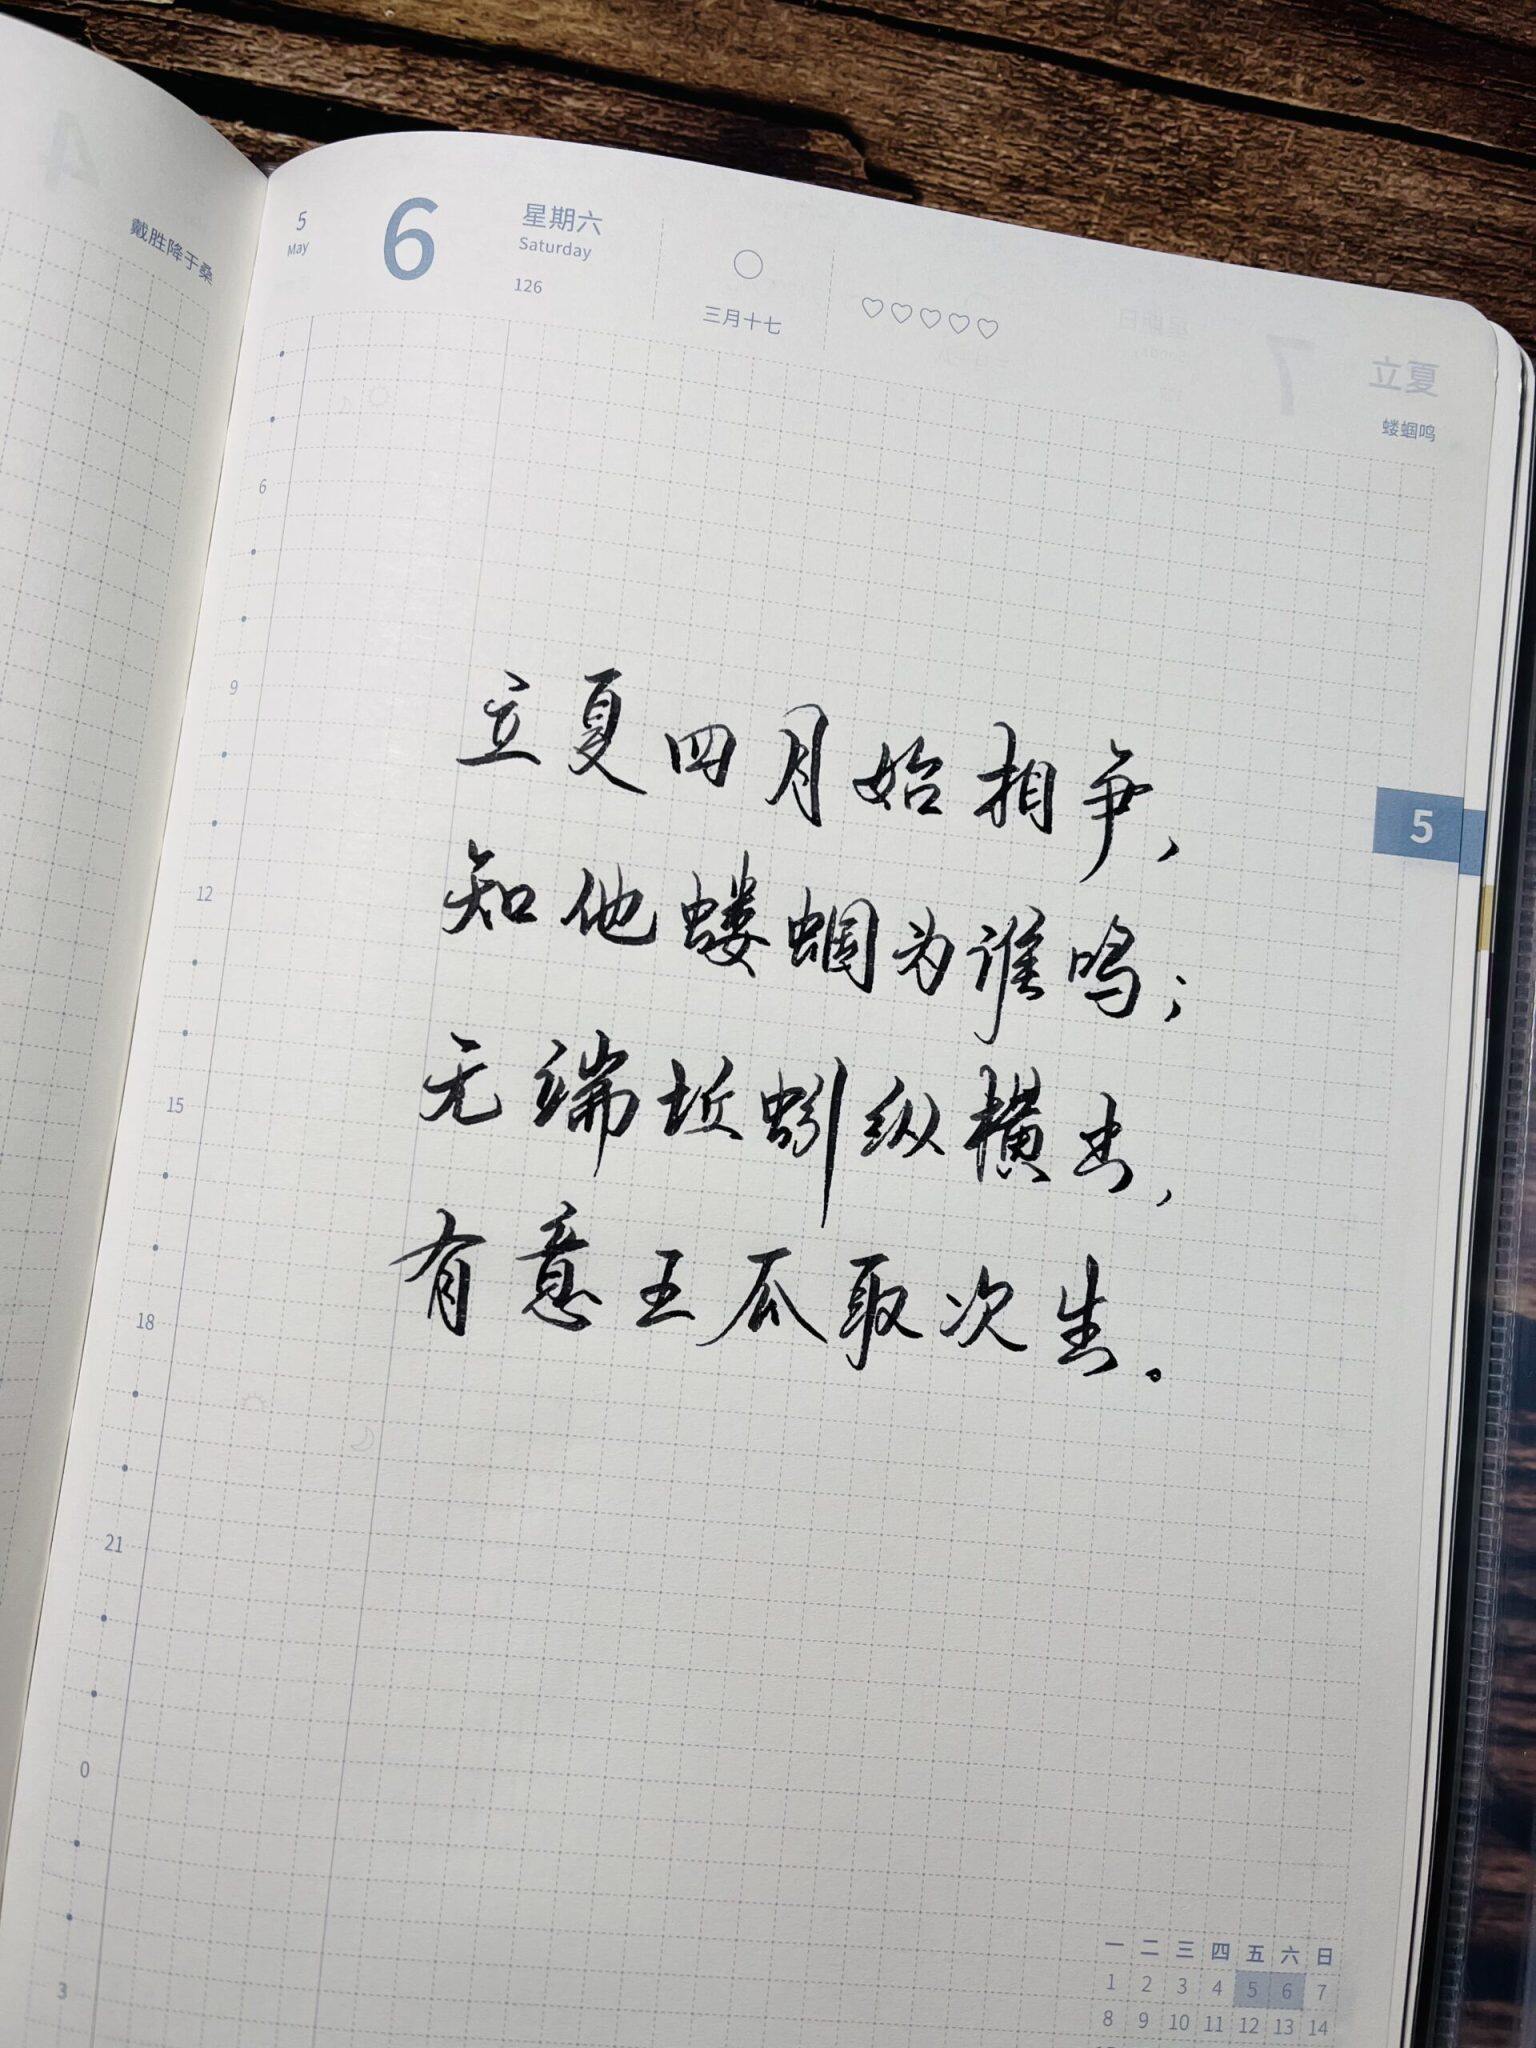 戴胜降于桑
5
May
6
星期六
Saturday
126
三月十七
立夏
蝼蝈鸣
6
9
12
15
18
21
0
3
5
立夏四月始相争，
知他蝼蝈为谁鸣；
无端坵蚓纵横出，
有意王瓜取次生。
一 二 三 四 五 六 日
1 2 3 4 5 6 7
8 9 10 11 12 13 14